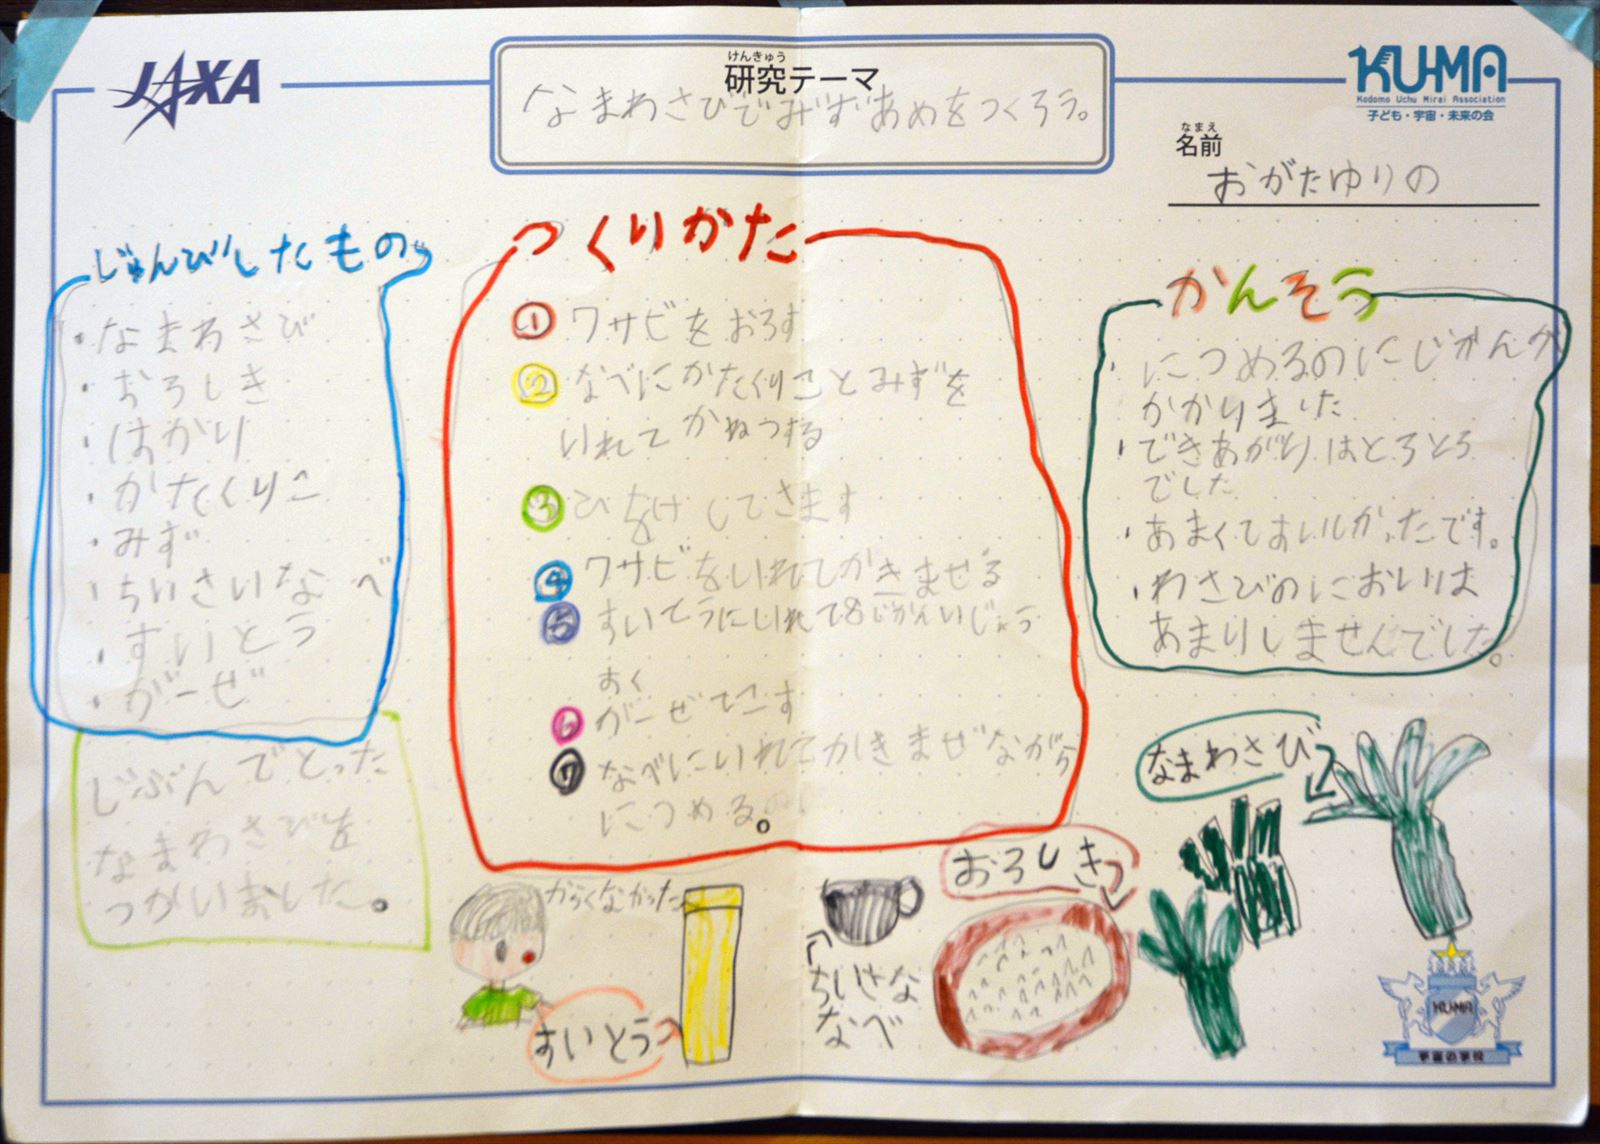 JAXA
けんきゅう
研究テーマ
なまわさびでみずあめをつくろう。
KUMA
Kodomo Uchu Mirai Association
子ども・宇宙・未来の会
なまえ
名前
おがたゆりの
じゅんびしたもの
・なまわさび
・おろしき
・はかり
・かたくりこ
・みず
・ちいさいなべ
・すいとう
・がーぜ
じぶんでとった
なまわさびを
つかいました。
つくりかた
① ワサビをおろす
② なべにかたくりことみずを
いれてかねつする
③ してさます
④ ワサビをいれてかきまぜる
⑤ すいとうにいれて8じかんいじょう
おく
⑥ がーぜでこす
⑦ なべにいれてかきまぜながら
につめる。
かんそう
・につめるのにじかんが
かかりました
・できあがりはとろとろ
でした
・あまくておいしかったです。
・わさびのにおいは
あまりしませんでした。
からくなかった
すいとう
ちいさな
なべ
おろしき
なまわさび
KUMA
宇宙の学校